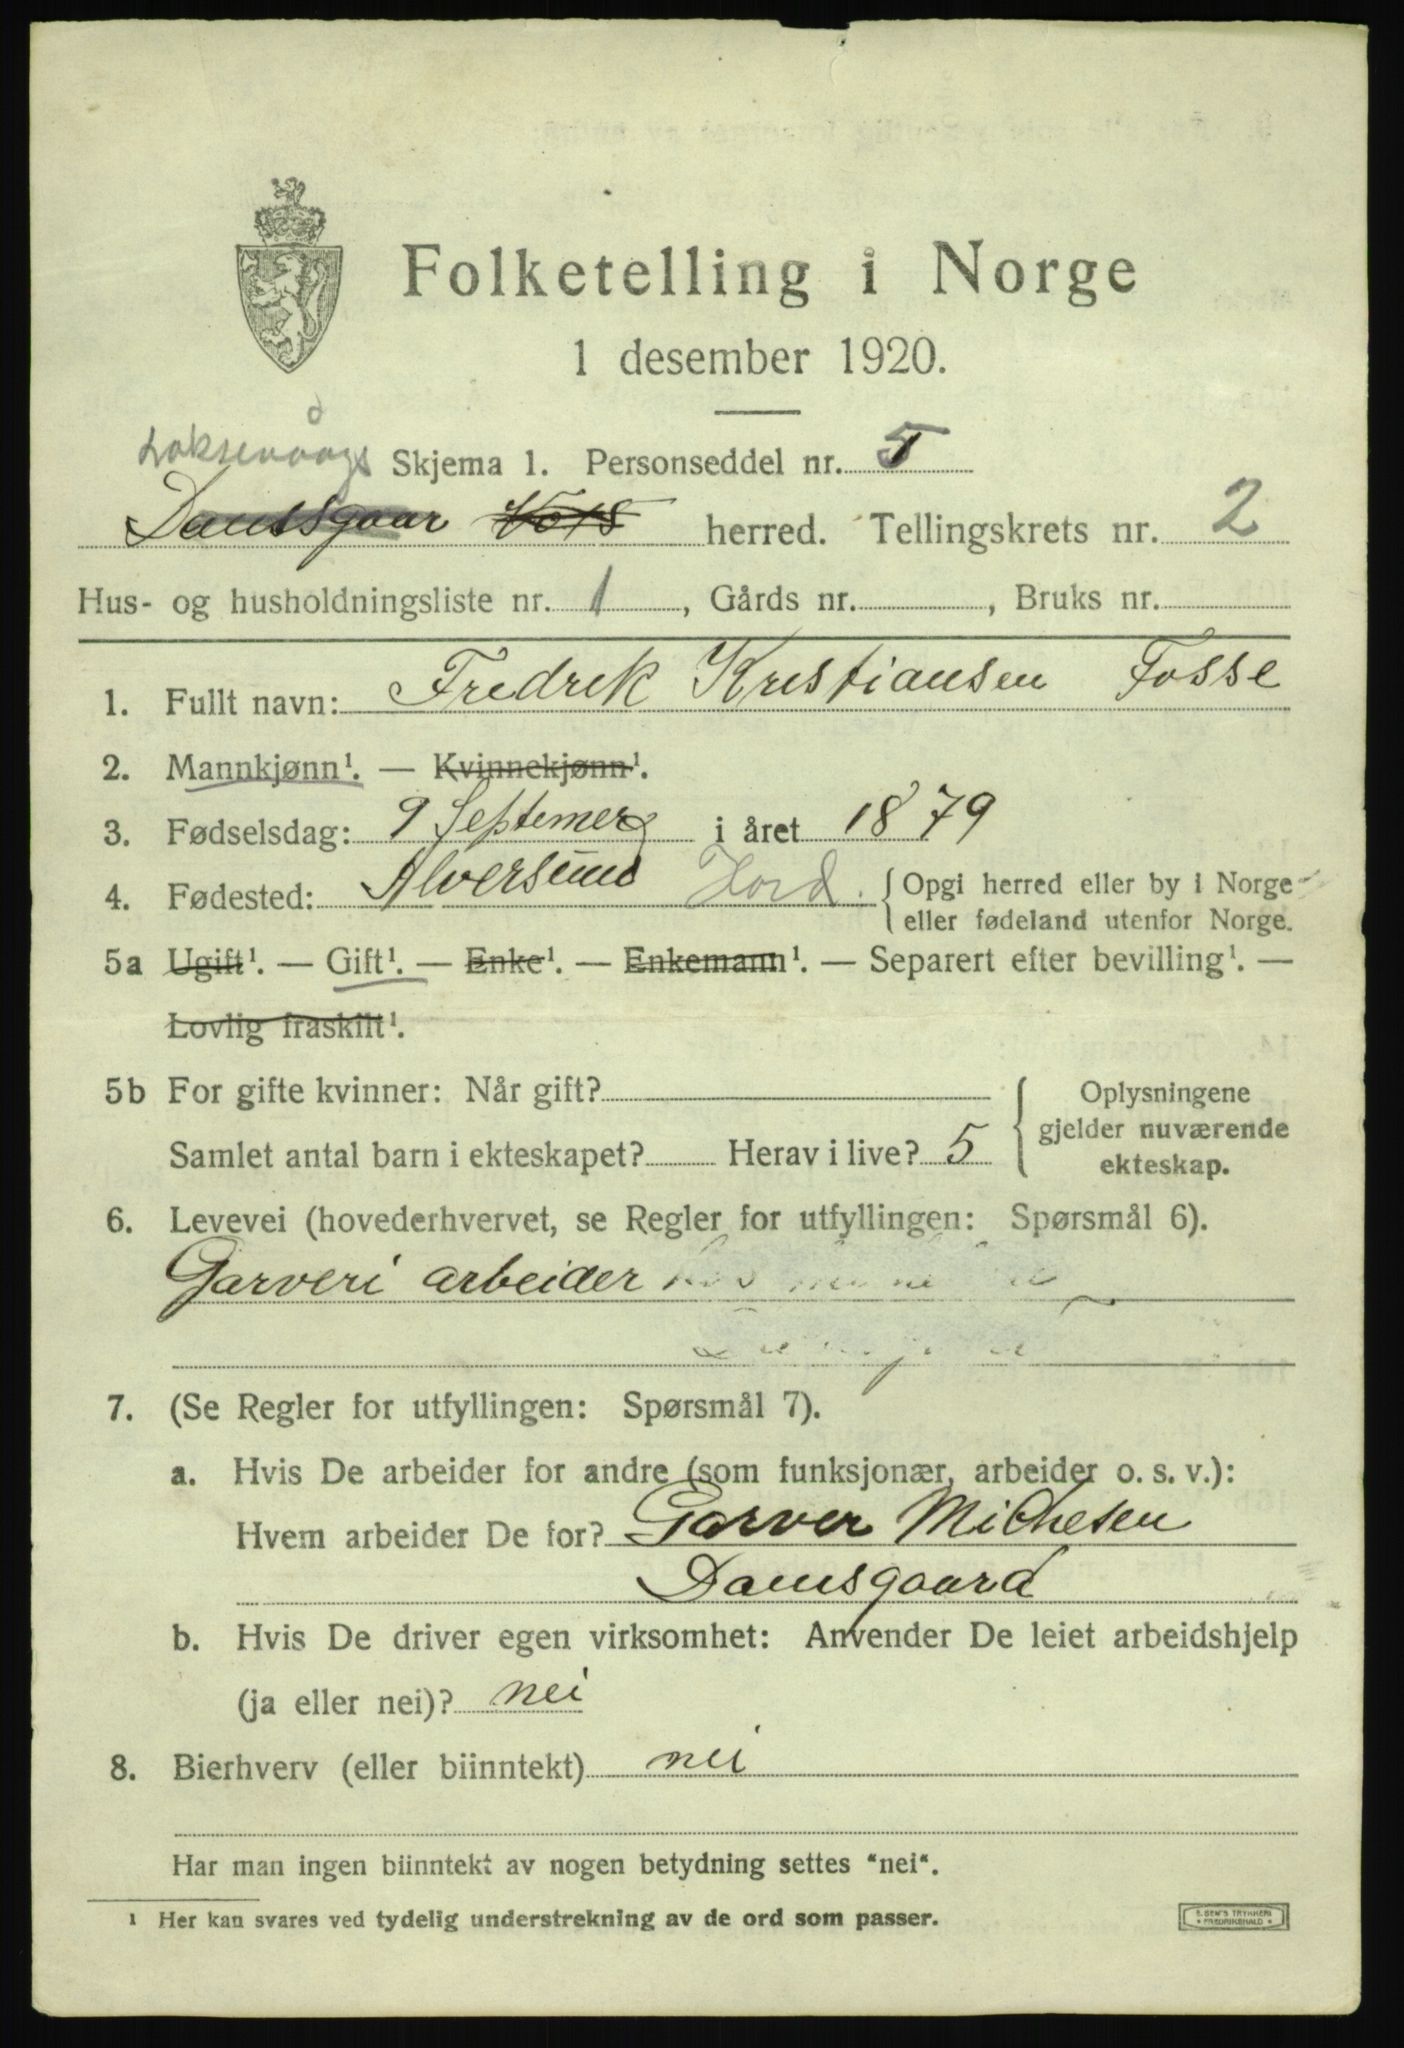 Folketelling i Norge
1 desember 1920.
Laksevågs Skjema 1. Personseddel nr. 5
Damsgaar herred. Tellingskrets nr. 2
Hus- og husholdningsliste nr. 1, Gårds nr. , Bruks nr.
1. Fullt navn: Fredrik Kristiansen Fosse
2. Mannkjønn¹. — Kvinnekjønn¹.
3. Fødselsdag: 9 Septemer i året 1879
4. Fødested: Alversund Hord. { Opgi herred eller by i Norge
eller fødeland utenfor Norge.
5a Ugift¹. — Gift¹. — Enke¹. — Enkemann¹. — Separert efter bevilling¹. —
Lovlig fraskilt¹.
5b For gifte kvinner: Når gift?
Samlet antal barn i ekteskapet? Herav i live? 5
{ Oplysningene
gjelder nuværende
ekteskap.
6. Levevei (hovederhvervet, se Regler for utfyllingen: Spørsmål 6).
Garveri arbeider
7. (Se Regler for utfyllingen: Spørsmål 7).
a. Hvis De arbeider for andre (som funksjonær, arbeider o. s. v.):
Hvem arbeider De for? Garver Michesen
Damsgaard
b. Hvis De driver egen virksomhet: Anvender De leiet arbeidshjelp
(ja eller nei)? nei
8. Bierhverv (eller biinntekt) nei
Har man ingen biinntekt av nogen betydning settes "nei".
¹ Her kan svares ved tydelig understrekning av de ord som passer.
E. SEM'S TRYKKERI
* FREDRIKSHALD *